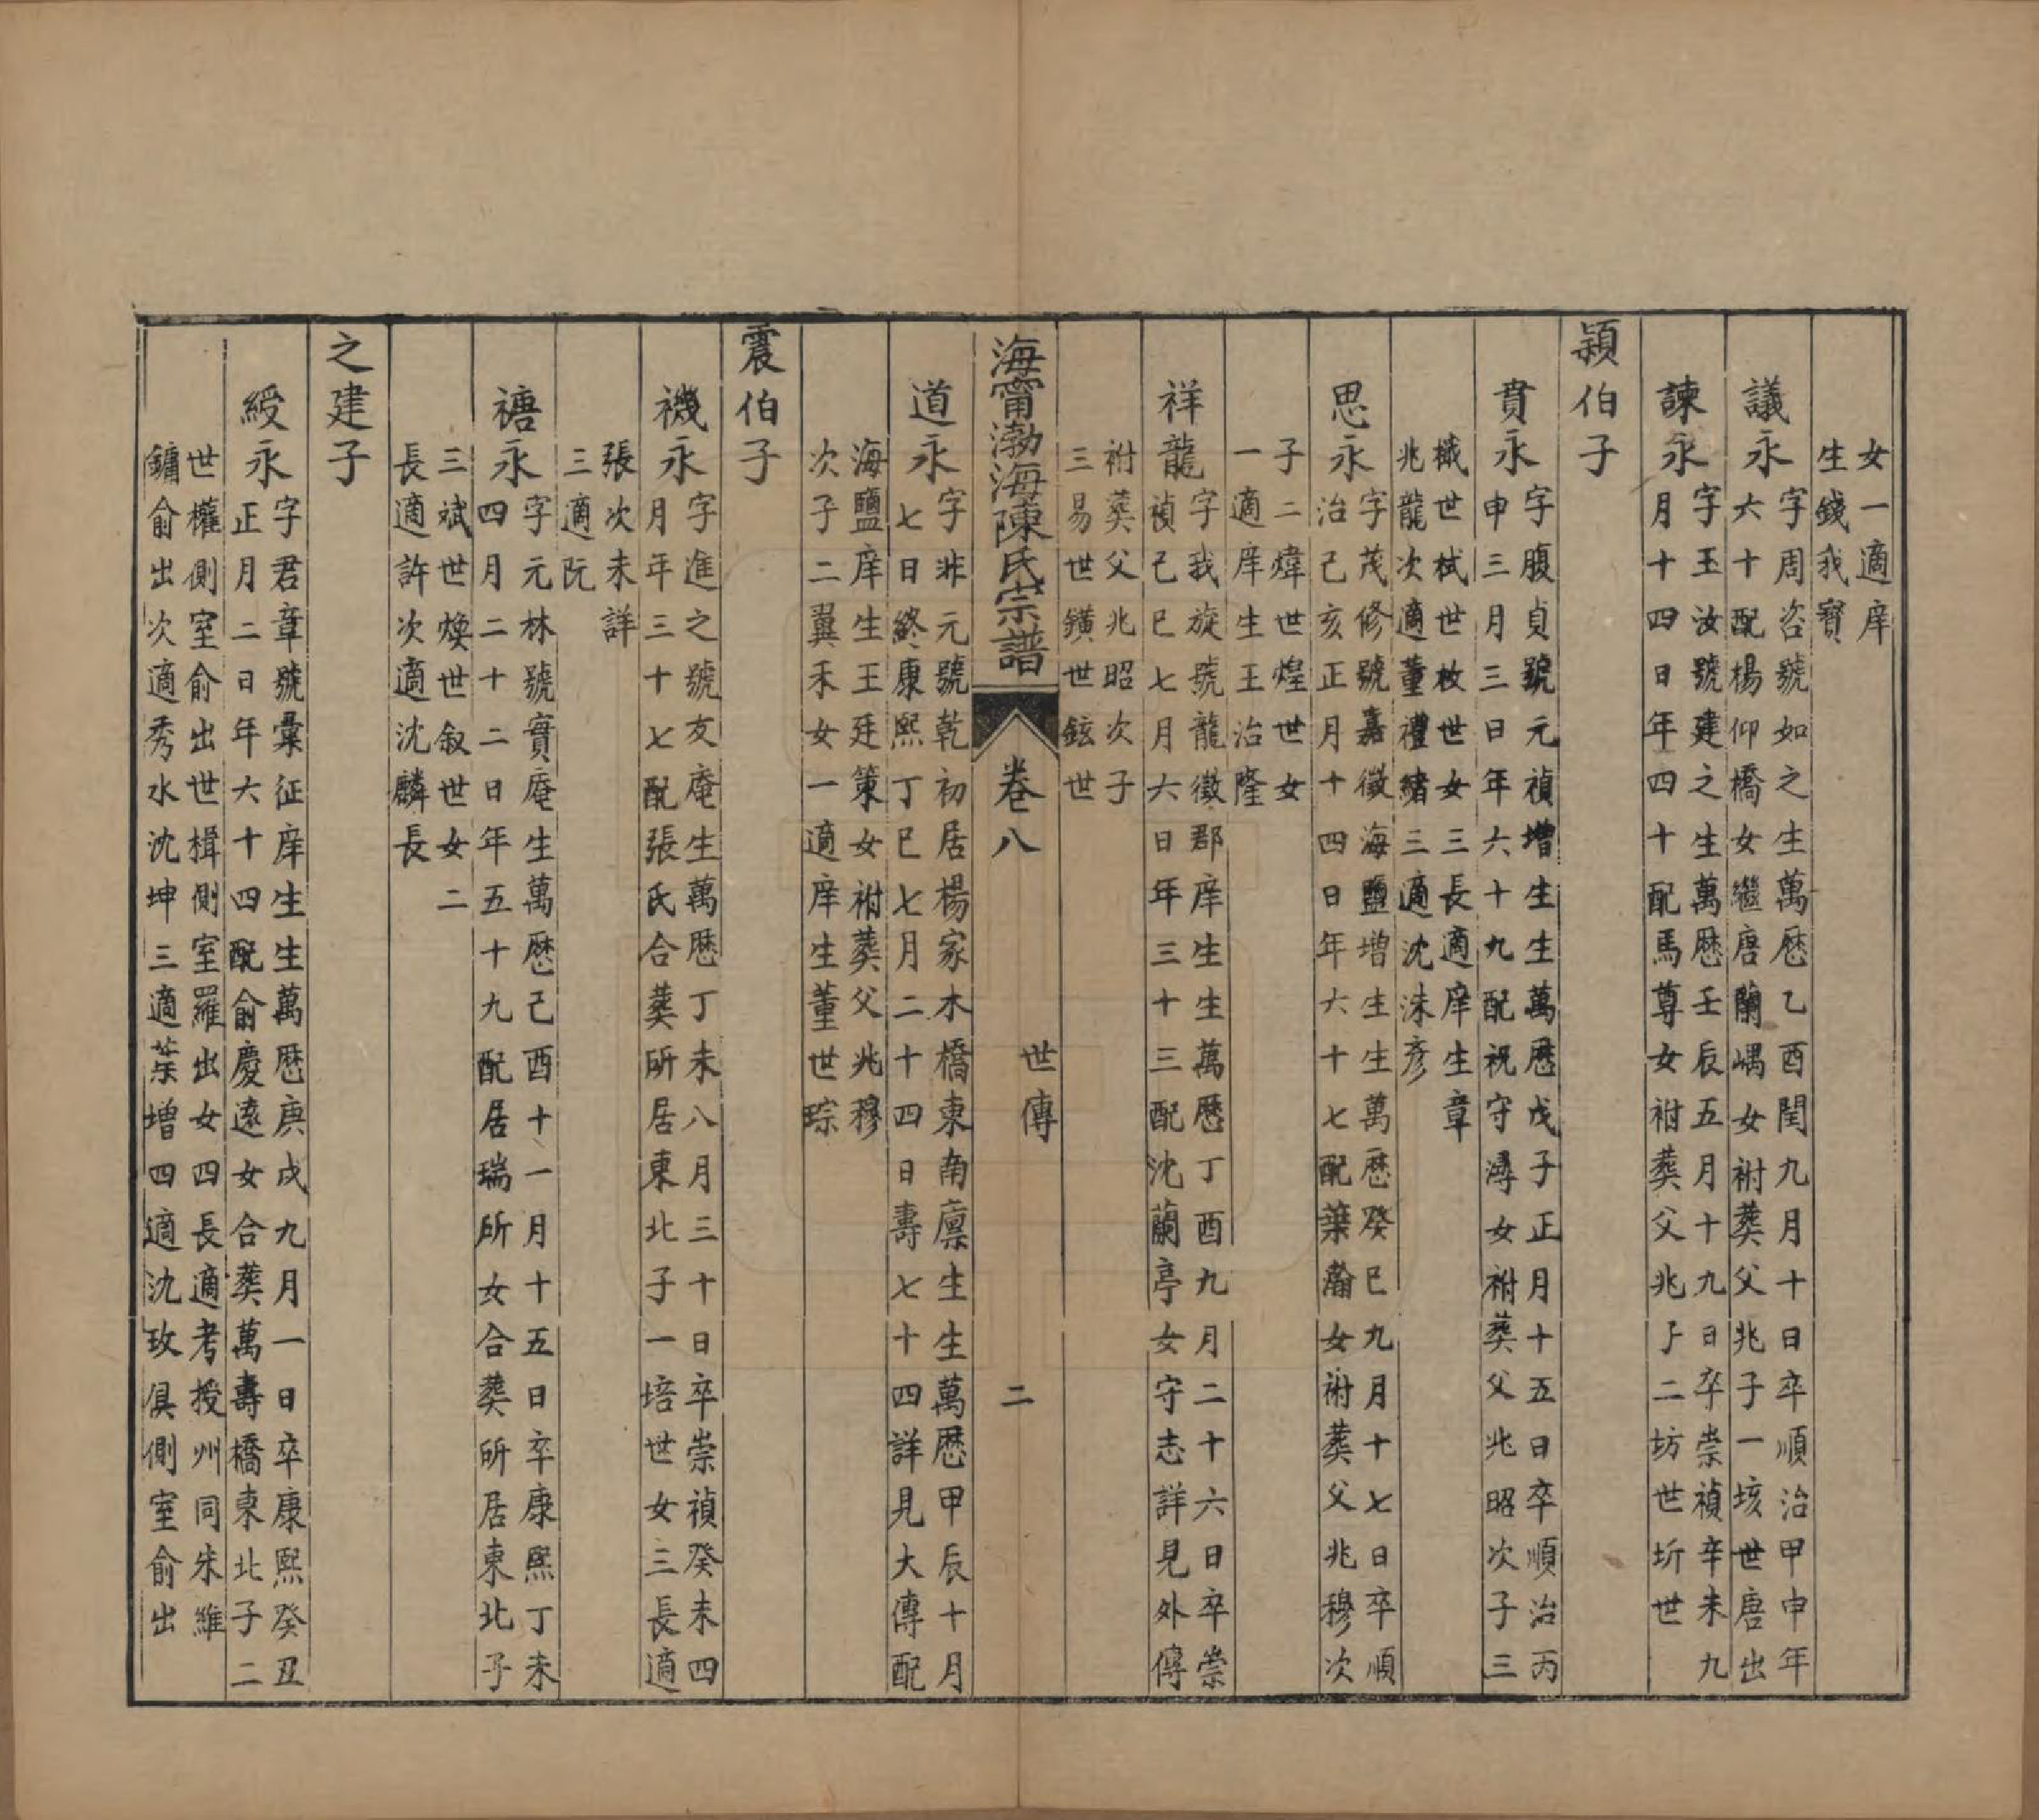 女一適庠
生錢我寶
議永
字周咨號如之生萬厯乙酉閏九月十日卒順治甲申年
六十配楊仰橋女繼唐蘭嵎女祔葬父兆子一垓世唐出
諫永
字玉汝號建之生萬厯壬辰五月十九日卒崇禎辛未九
月十四日年四十配馬尊女祔葬父兆子二坊世圻世
潁伯子
賁永
字腹貞號元禎增生生萬厯戊子正月十五日卒順治丙
申三月三日年六十九配祝守潯女祔葬父兆昭次子三
樴世栻世枚世女三長適庠生章
兆龍次適董禮緒三適沈洙彥
思永
字茂修號嘉徵海鹽增生生萬厯癸巳九月十七日卒順
治己亥正月十四日年六十七配葉瀚女祔葬父兆穆次
子二煒世煌世女
一適庠生王治隆
祥龍
字我旋號龍徵郡庠生生萬厯丁酉九月二十六日卒崇
禎己巳七月六日年三十三配沈蘭亭女守志詳見外傳
祔葬父兆昭次子
三易世鐄世鉉世
海甯渤海陳氏宗譜
卷八
世傳
二
道永
字非元號乾初居楊家木橋東南廩生生萬厯甲辰十月
七日終康熙丁巳七月二十四日壽七十四詳見大傳配
海鹽庠生王廷策女祔葬父兆穆
次子二翼禾女一適庠生董世琮
震伯子
禨永
字進之號友庵生萬厯丁未八月三十日卒崇禎癸未四
月年三十七配張氏合葬所居東北子一培世女三長適
張次未詳
三適阮
禟永
字元林號實庵生萬厯己酉十一月十五日卒康熙丁未
四月二十二日年五十九配居瑞所女合葬所居東北子
三斌世煥世叙世女二
長適許次適沈麟長
之建子
綬永
字君章號彙征庠生生萬厯庚戌九月一日卒康熙癸丑
正月二日年六十四配俞慶遠女合葬萬壽橋東北子二
世權側室俞出世楫側室羅出女四長適考授州同朱維
鏞俞出次適秀水沈坤三適葉增四適沈玫俱側室俞出